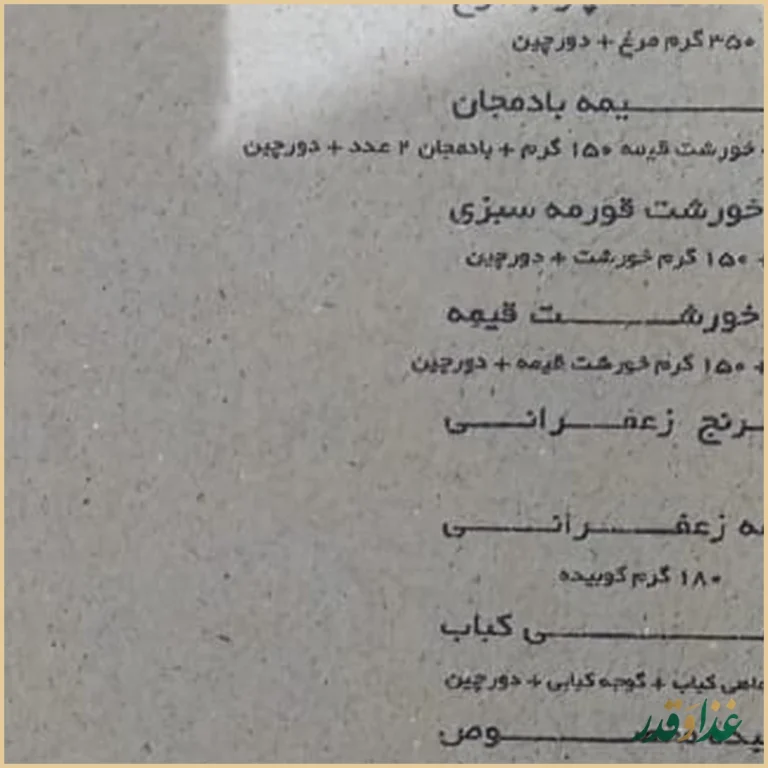 ۳۵۰ گرم مرغ + دورچین
یمه بادمجان
خورشت قیمه ۱۵۰ گرم + بادمجان ۲ عدد + دورچین
خورشت قورمه سبزی
+ ۱۵۰ گرم خورشت + دورچین
خورشت قیمه
+ ۱۵۰ گرم خورشت قیمه + دورچین
رنج زعفرانی
ه زعفرانی
۱۸۰ گرم کوبیده
ی کباب
ماهی کباب + گوجه کبابی + دورچین
غذا و قدر